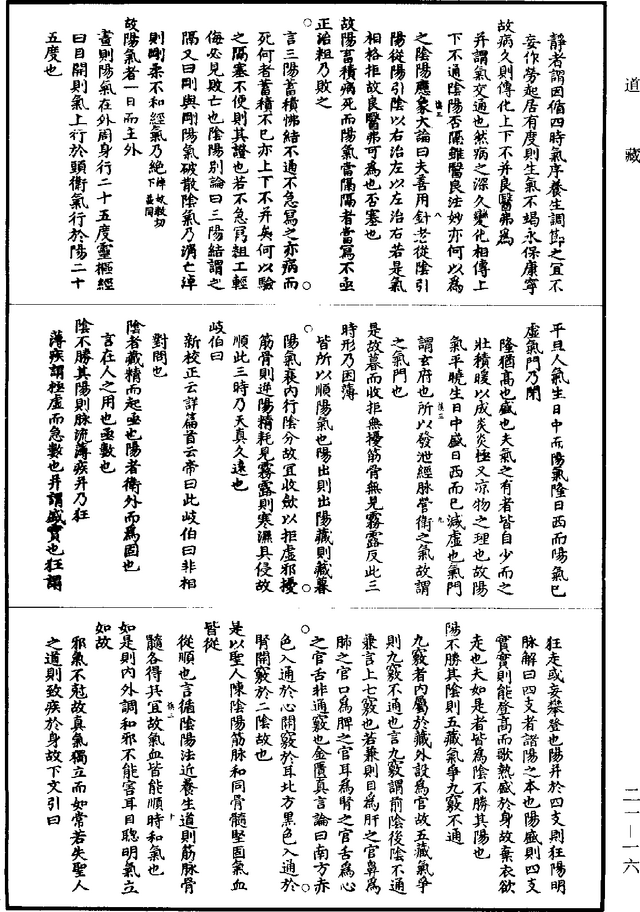 道藏
靜者謂因循四時氣序養生調節之宜不
妄作勞起居有度則生氣不竭永保康寧
故病久則傳化上下不并良醫弗為
并謂氣交通也然病之深久變化相傳上
下不通陰陽否隔雖醫良法妙亦何以為
之陰陽應象大論曰夫善用針者從陰引
陽從陽引陰以右治左以左治右若是氣
相格拒故良醫弗可為也否塞也
故陽蓄積病死而陽氣當隔隔者當寫不亟
正治粗乃敗之
言三陽蓄積怫結不通不急寫之亦病而
死何者蓄積不已亦上下不并矣何以驗
之隔塞不便則其證也若不急寫粗工輕
侮必見敗亡也陰陽別論曰三陽結謂之
隔又曰剛與剛陽氣破散陰氣乃消亡淖
則剛柔不和經氣乃絕
故陽氣者一日而主外
晝則陽氣在外周身行二十五度靈樞經
曰目開則氣上行於頭衛氣行於陽二十
五度也
平旦人氣生日中而陽氣隆日西而陽氣已
虛氣門乃閉
隆猶高也盛也夫氣之有者皆自少而之
壯積暖以成炎炎極又涼物之理也故陽
氣平曉生日中盛日西而已減虛也氣門
謂玄府也所以發泄經脉營衛之氣故謂
之氣門也
是故暮而收拒無擾筋骨無見霧露反此三
時形乃困薄
皆所以順陽氣也陽出則出陽藏則藏暮
陽氣衰內行陰分故宜收斂以拒虛邪擾
筋骨則逆陽精耗見霧露則寒濕具侵故
順此三時乃天真久遠也
岐伯曰
新校正云詳篇首云帝曰此岐伯曰非相
對問也
陰者藏精而起亟也陽者衛外而為固也
言在人之用也亟數也
陰不勝其陽則脉流薄疾并乃狂
薄疾謂極虛而急數也并謂盛實也狂謂
狂走或妄攀登也陽并於四支則狂陽明
脉解曰四支者諸陽之本也陽盛則四支
實實則能登高而歌熱盛於身故棄衣欲
走也夫如是者皆為陰不勝其陽也
陽不勝其陰則五藏氣爭九竅不通
九竅者內屬於藏外設為官故五藏氣爭
則九竅不通也言九竅謂前陰後陰不通
兼言上七竅也若兼則目為肝之官鼻為
肺之官口為脾之官耳為腎之官舌為心
之官舌非通竅也金匱真言論曰南方赤
色入通於心開竅於耳北方黑色入通於
腎開竅於二陰故也
是以聖人陳陰陽筋脉和同骨髓堅固氣血
皆從
從順也言循陰陽法近養生道則筋脉骨
髓各得其宜故氣血皆能順時和氣也
如是則內外調和邪不能害耳目聰明氣立
如故
邪氣不剋故真氣獨立而如常若失聖人
之道則致疾於身故下文引曰
二一—一六